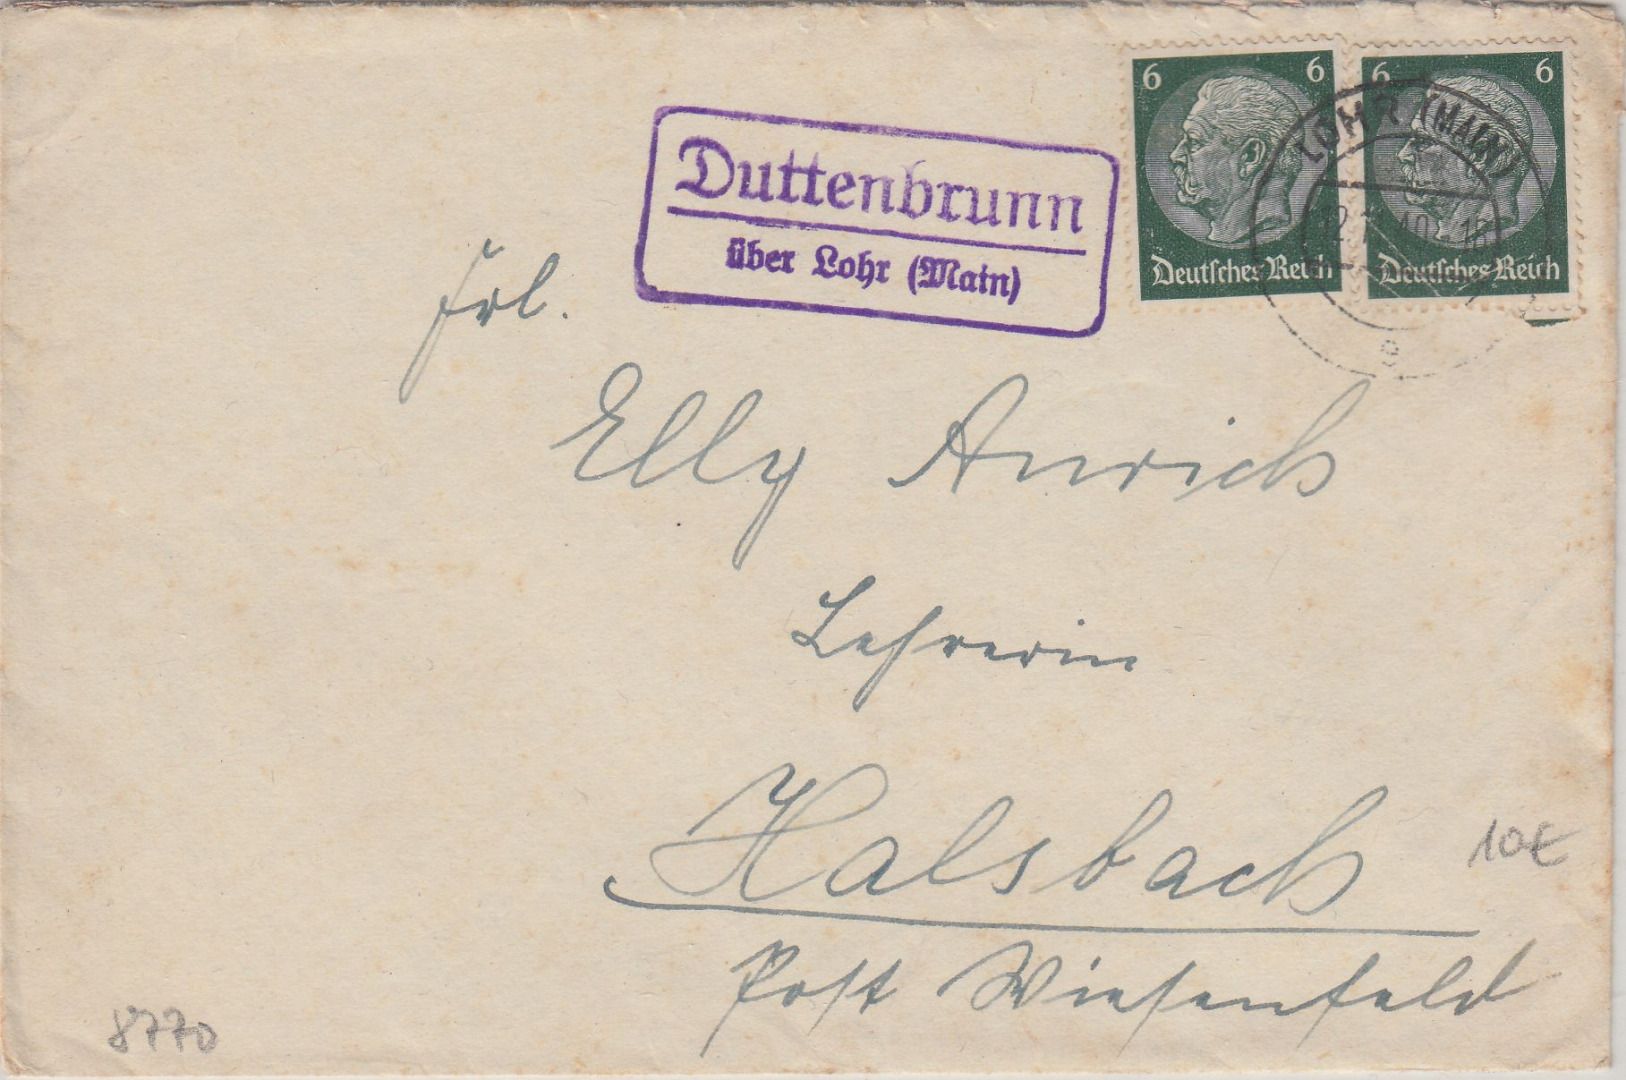 6 6
Deutsches Reich
6 6
Deutsches Reich
LOHR (MAIN)
Duttenbrunn
über Lohr (Main)
Frl.
Elly Anrich
Lehrerin
Halsbach
Post Wiesenfeld
10€
8770